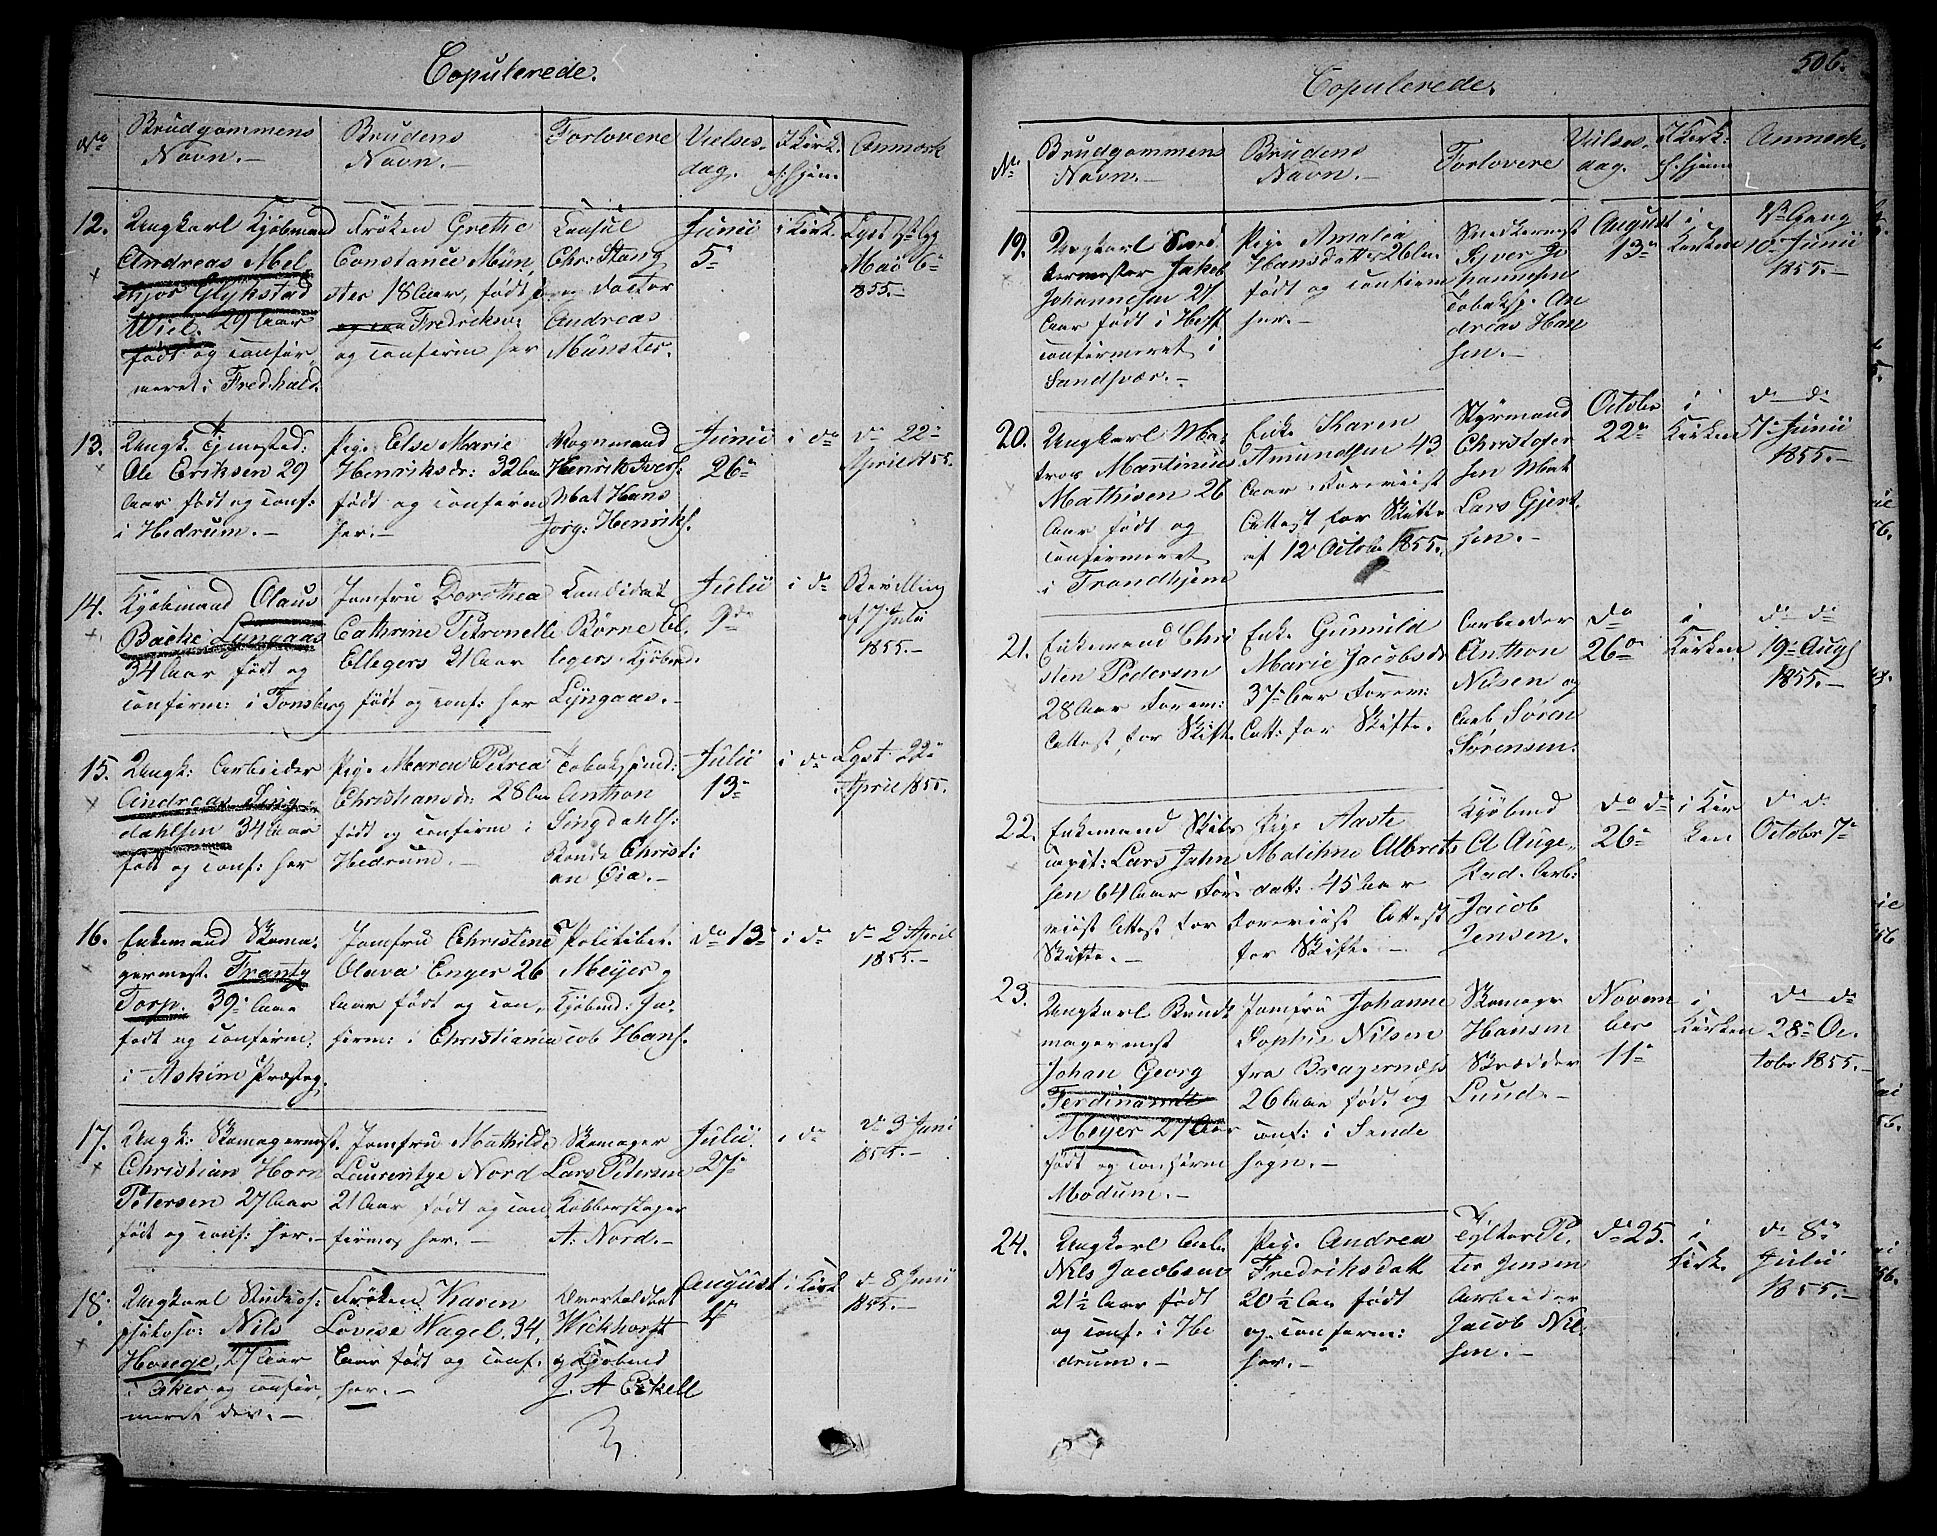 Copulerede.
No
Brudgommens
Navn.
Brudens
Navn.
Forlovere
Vielses-
dag.
I Kirk.
el: hjem.
Anmærk
12.
Ungkarl Kjøbmand
Andreas Mel
Glykstad
Wiel. 29 Aar
født og confir
meret i Fredhald.
Frøken Grethe
Constance Mün
ster 18 Aar, født
Fredriksv:
og confirm her
Consul
Chr: Stang
Doctor
Andreas
Münster.
Junii
5te
i Kirk.
Lyst
Mai 6te
1855.
13.
Ungk. Tjenested:
Ole Eriksen 29
Aar født og conf:
i Hedrum.
Pige Else Marie
Henriksdr: 32 Aar
født og confirm
her.
Vognmand
Henrik Ivers:
Mat Hans
Jørg: Henriks.
Junii
26de
i do
do 22de
April 1855.
14.
Kjøbmand Olaus
Backe Lyngaas
34 Aar født og
confirm: i Tonsberg
Jomfru Dorothea
Cathrine Petronelle
Ellegers 31 Aar
født og conf: her
Candidat
Børne El
legers. Kjøbmd.
Lyngaas.
Julii
9de
i do
Bevilling
af 7 Juli
1855.
15.
Ungk: Arbeider
Andreas Ling
dahlsen 34 Aar
født og conf: her
Pige Maren Petrea
Christiansdr: 28 Aar
født og confirm i
Hedrum.
Tobakspind:
Anthon
Lingdahls:
Bonde Christi
an Øia.
Julii
13de
i do
Lyst 22de
April 1855.
16.
Enkemand Skoma
germest. Frantz
Torp. 39 Aar
født og confirm.
i Askim Præsteg.
Jomfru Christine
Olava Enger 26
Aar født og con
firm: i Christiania
Politibet.
Meyer og
Kjøbmd: Ja
cob Hans.
do 13de
i do
do 2 April
1855.
17.
Ungk: Skomagermest.
Christian Horn
Petersen 27 Aar
født og conf: her.
Jomfru Mathilde
Laurentze Nord
21 Aar født og con
firmer her.
Skomager
Lars Petersen
Kobberslager
A. Nord.
Julii
27de
i do
do 3 Juni
1855.
18.
Ungkarl Studios:
Nils
Houge, 27 Aar
i Aker og confir
meret der.
Frøken Karen
Lovise Wagel. 34,
Aar født og conf.
her.
Overtoldbet
Wickhorst
og Kjøbmd
J. A Eckell
August
4de
i Kirk
do 8 Juni
1855.
506.
Copulerede.
No
Brudgommens
Navn.
Brudens
Navn.
Forlovere
Vielses-
dag.
I Kirk:
el. hjem
Anmærk.
19.
Ungkarl
Jakob
Johannesen 27
Aar født i Heff
confirmeret i
Sandsvær.
Pige Amalia
Hansdatter 26 Aar
født og confirm
her.
Snedkermest
Syver Jo
hannesen
Tobaksp. An
dreas Han
sen.
August
13de
i
Kirken
1ste Gang
10de Junii
1855.
20.
Ungkarl Ma
tros Martinius
Mathisen 26
Aar født og
confirmeret
i Trondhjem
Enke Karen
Amundsen 43
Aar foreviist
Attest for Skifte
af 12 Octobr 1855.
Styrmand
Christofer
sen Mat
Lars Gjert
sen.
Octobr
22de
i
Kirken
do do
Junii
1855.
21.
Enkemand Chri
sten Pedersen
28 Aar Forevi:
Attest for Skifte
Enke Gunild
Marie Jacobsdr
37 Aar Forevi:
Att: for Skifte.
Arbeider
Anthon
Nilsen og
Arb Søren
Sørensen.
do
26de
i
Kirken
do do
19de Augs
1855.
22.
Enkemand Skibs
capit: Lars Jahn
sen 64 Aar For
viist Attest for
Skifte.
Pige Aaste
Mathhne Albrets
datt: 45 Aar
Foreviist Attest
for Skifte.
Kjøbmd
A Auge
stad. Arb:
Jacob
Jensen.
do do
26de
i Kir
ken
do do
Octobr 7de
23.
Ungkarl Bundt
magermest
Johan Georg
Ferdinandt
Meyer 27 Aar
født og confirm
Modum.
Jomfru Johanne
Sophie Nilsen
fra Bragernæs
26 Aar født og
conf: i Sande
sogn.
Skomager
Hansen
Skrædder
Lund.
Novem
ber
11te
i
Kirken
do do
28de Oc
tobr 1855.
24.
Ungkarl Arb.
Nils Jacobsen
21½ Aar født
og conf. i He
drum.
Pige Andrea
Fredriksdatt
20½ Aar født
og confirm:
her.
Tylter Pe
ter Jensen
Arbeider
Jacob Nil
sen.
do 25.
i
Kirk.
do 8de
Julii
1855.